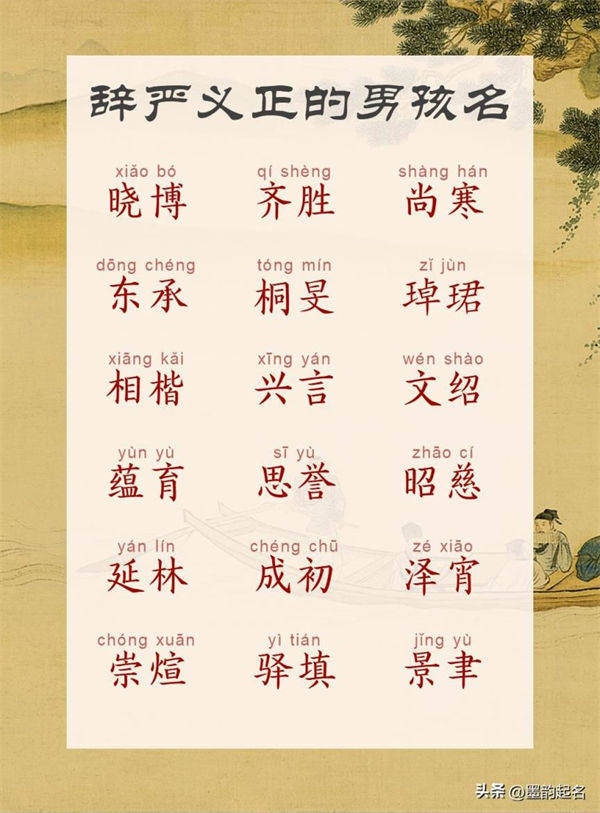 辞严义正的男孩名
xiǎo bó qí shèng shàng hán
晓博 齐胜 尚寒
dōng chéng tóng mín zǐ jùn
东承 桐旻 琸珺
xiāng kǎi xīng yán wén shào
相楷 兴言 文绍
yùn yù sī yù zhāo cí
蕴育 思誉 昭慈
yán lín chéng chū zé xiāo
延林 成初 泽宵
chóng xuān yì tián jǐng yù
崇煊 驿填 景聿
头条 @墨韵起名